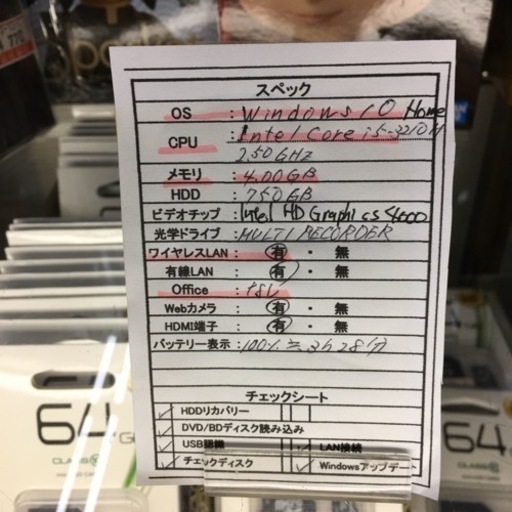 スペック
OS : Windows10 Home
CPU : Intel Core i5-3210M
2.50GHz
メモリ : 4.00GB
HDD : 750GB
ビデオチップ : Intel HD Graphics 4000
光学ドライブ : MULTI RECORDER
ワイヤレスLAN : 有 ・ 無
有線LAN : 有 ・ 無
Office : なし
Webカメラ : 有 ・ 無
HDMI端子 : 有 ・ 無
バッテリー表示 : 100%≒3h28分
チェックシート
HDDリカバリー
DVD/BDディスク読み込み
USB認識 LAN接続
チェックディスク Windowsアップデート
64
CLASS
64
CLASS